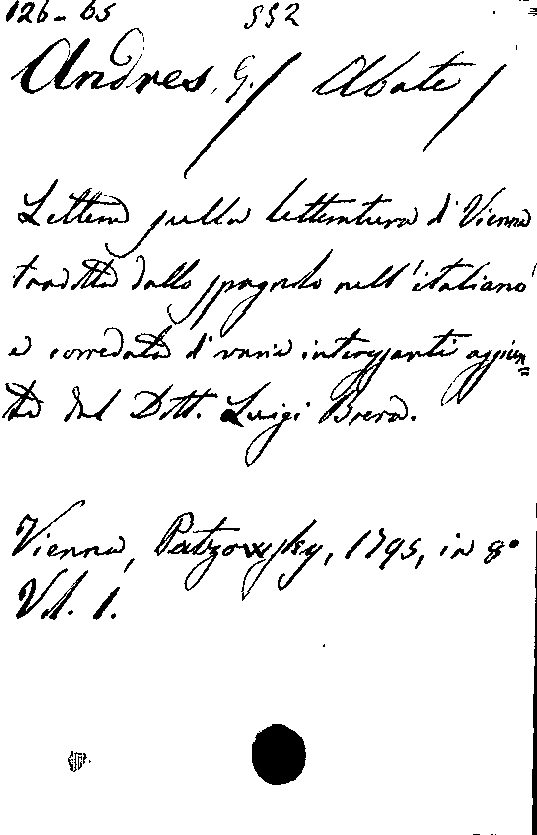 126-65 552
Andres, G. / Abate /
Lettera sulla letteratura di Vienna
tradotta dallo spagnolo nell'italiano
e corredata di varie interessanti aggiun=
te dal Dott. Luigi Brera.
Vienna, Patzowsky, 1795, in 8°
Vol. 1.